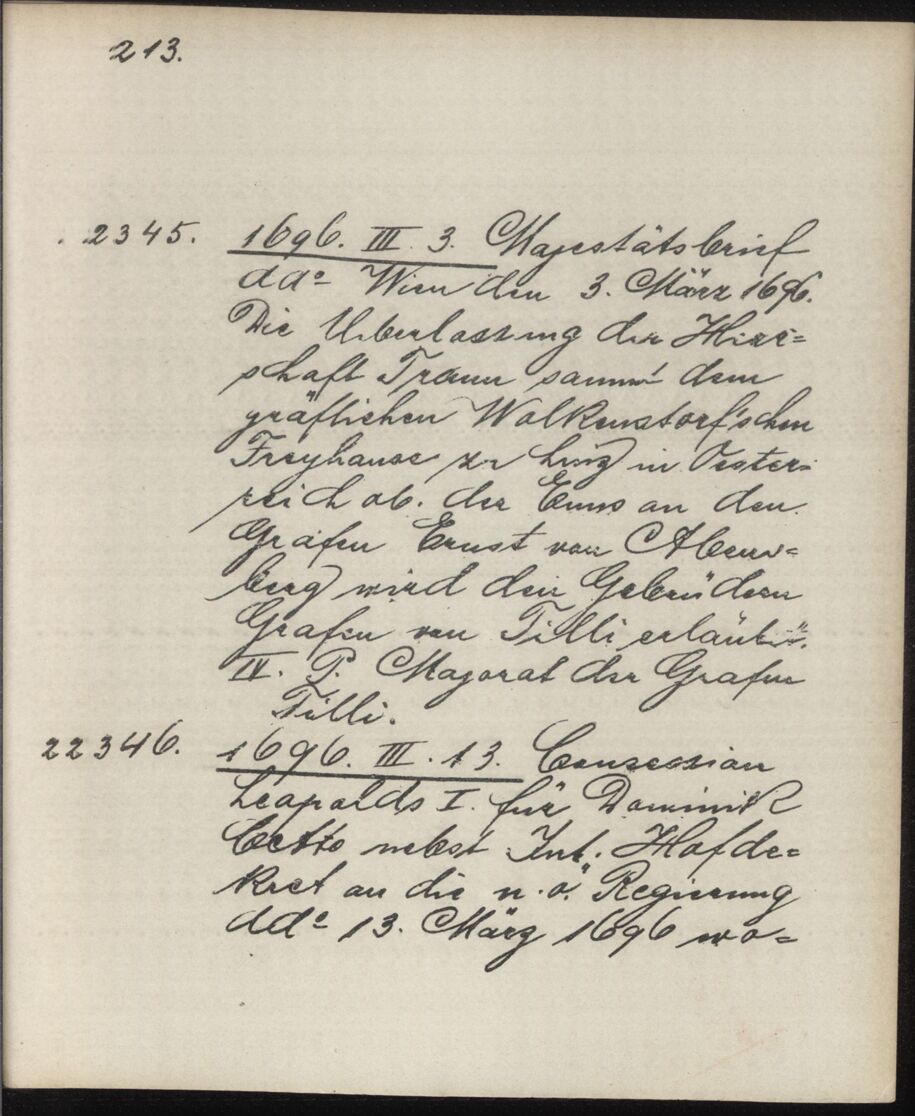 213.
2345. 1696. III. 3. Majestätsbrief
ddo Wien den 3. März 1696.
Die Überlassung der Herr=
schaft Traun sammt dem
gräflichen Wolkenstorf'schen
Freyhause zu Linz in Oester=
reich ob. der Enns an den
Grafen Ernst von Abens=
berg wird den Gebrüdern
Grafen von Tilli erlaubt.
IV. P. Majorat der Grafen
Tilli.
22346. 1696. III. 13. Concession
Leopolds I. für Dominik
Cetto nebst Int. Hofde=
kret an die n. ö. Regierung
ddo 13. März 1696 wo=